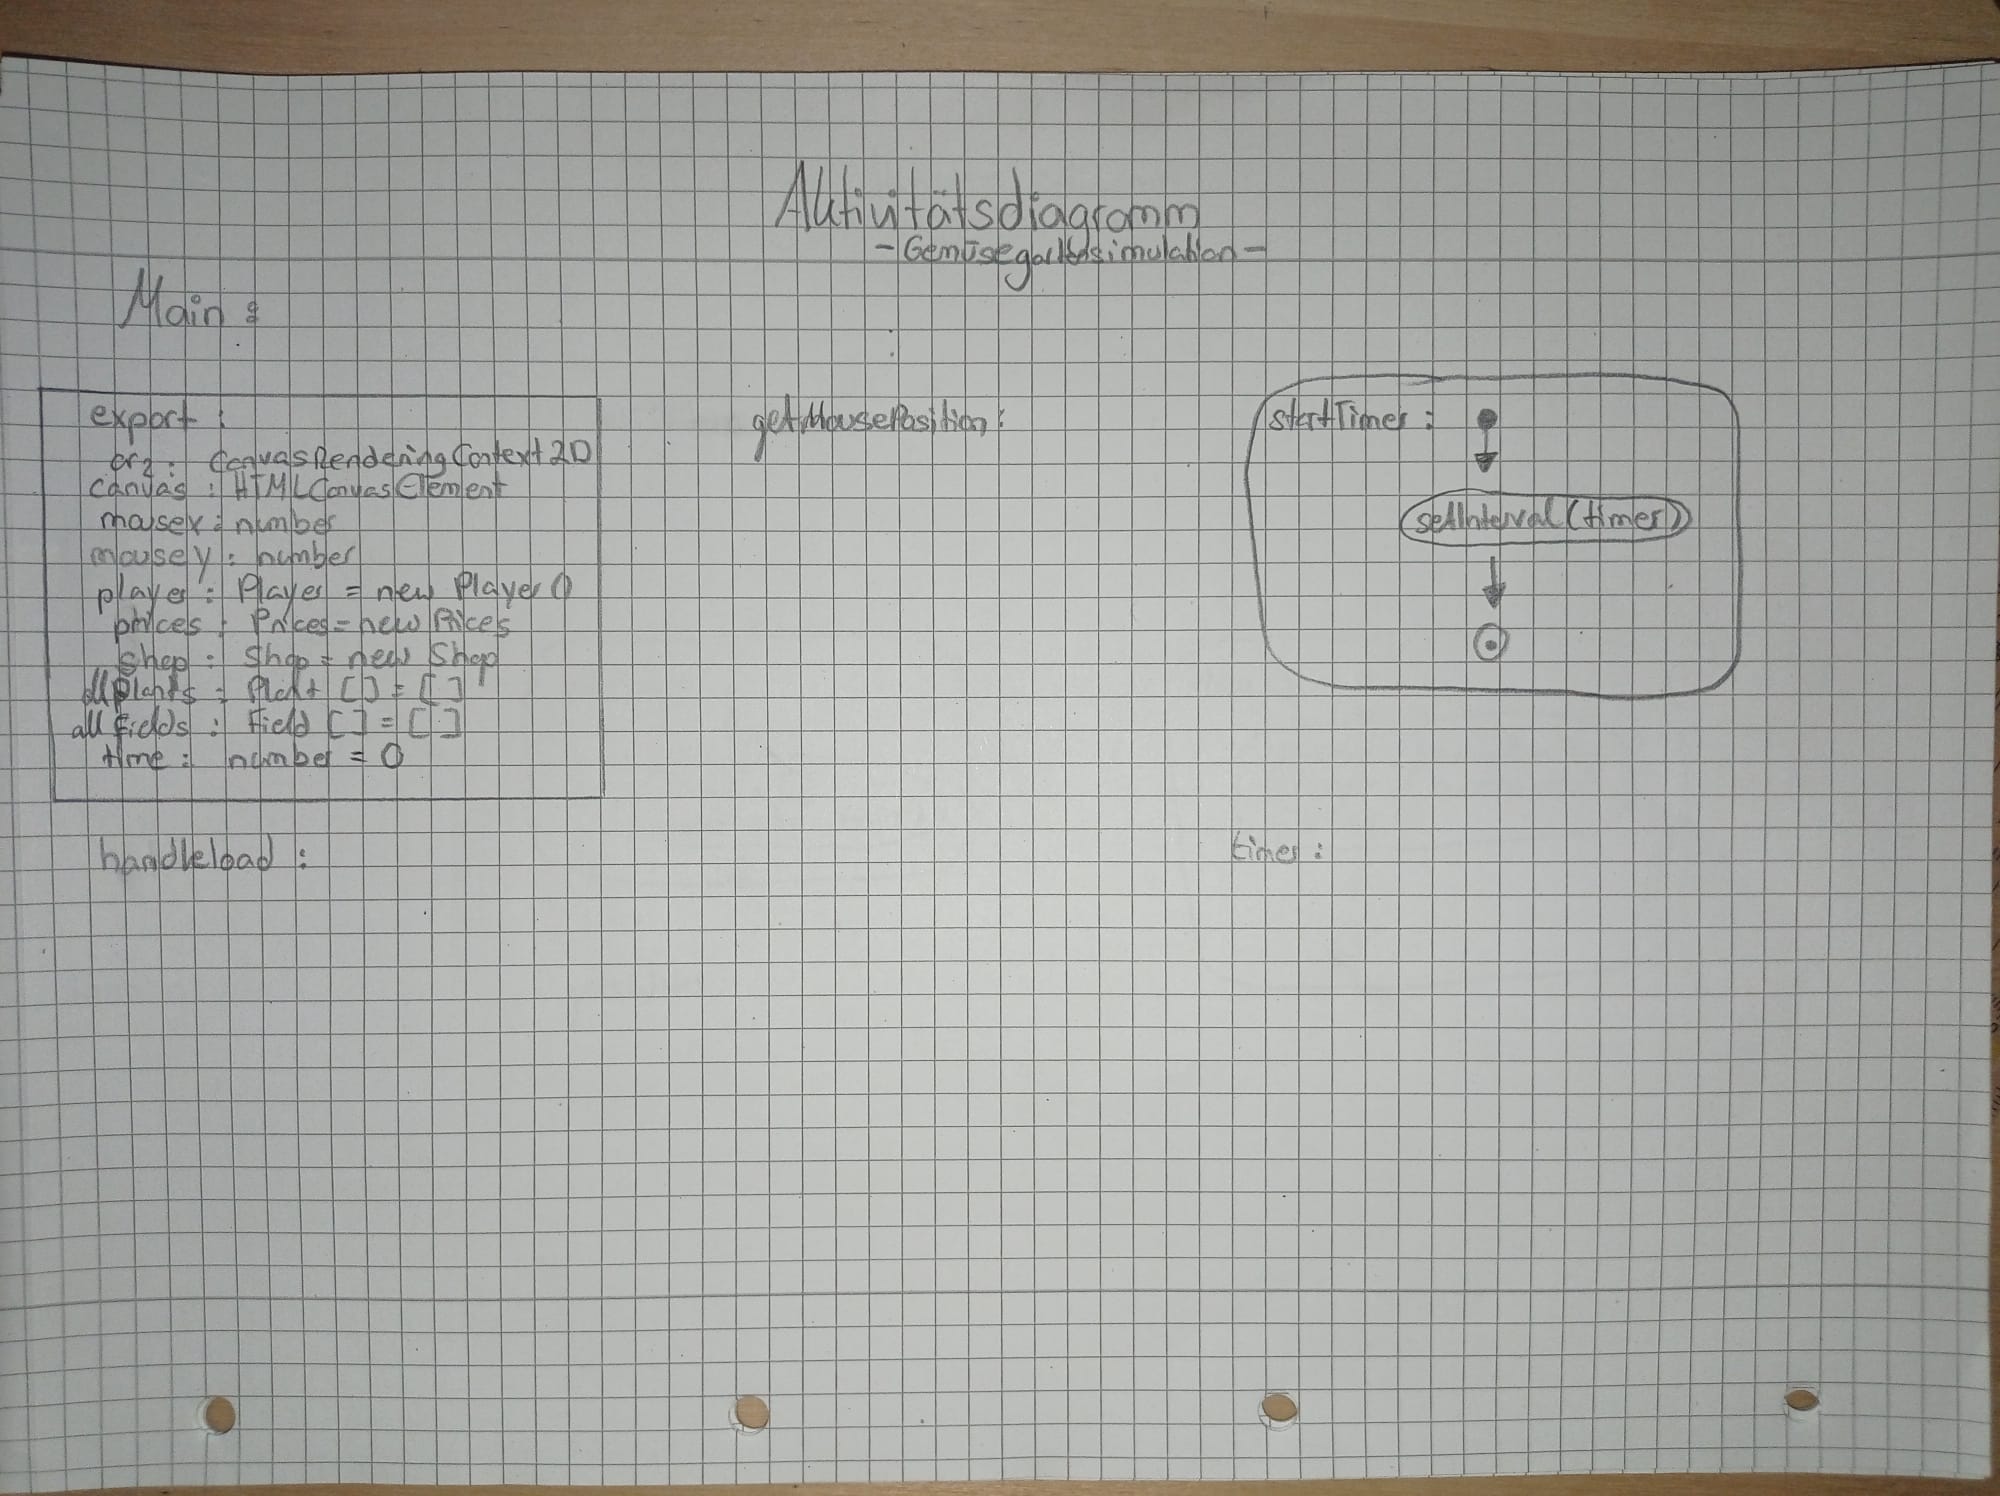 Aktivitätsdiagramm
- Gemüsegartensimulation -
Main:
export:
crc2: CanvasRenderingContext2D
canvas: HTMLCanvasElement
mousex: number
mousey: number
player: Player = new Player()
prices: Prices = new Prices
shop: Shop = new Shop
allplants: Plant [] = []
allfields: Field [] = []
time: number = 0
handleload:
getMousePosition:
startTimer:
setInterval(timer)
timer: